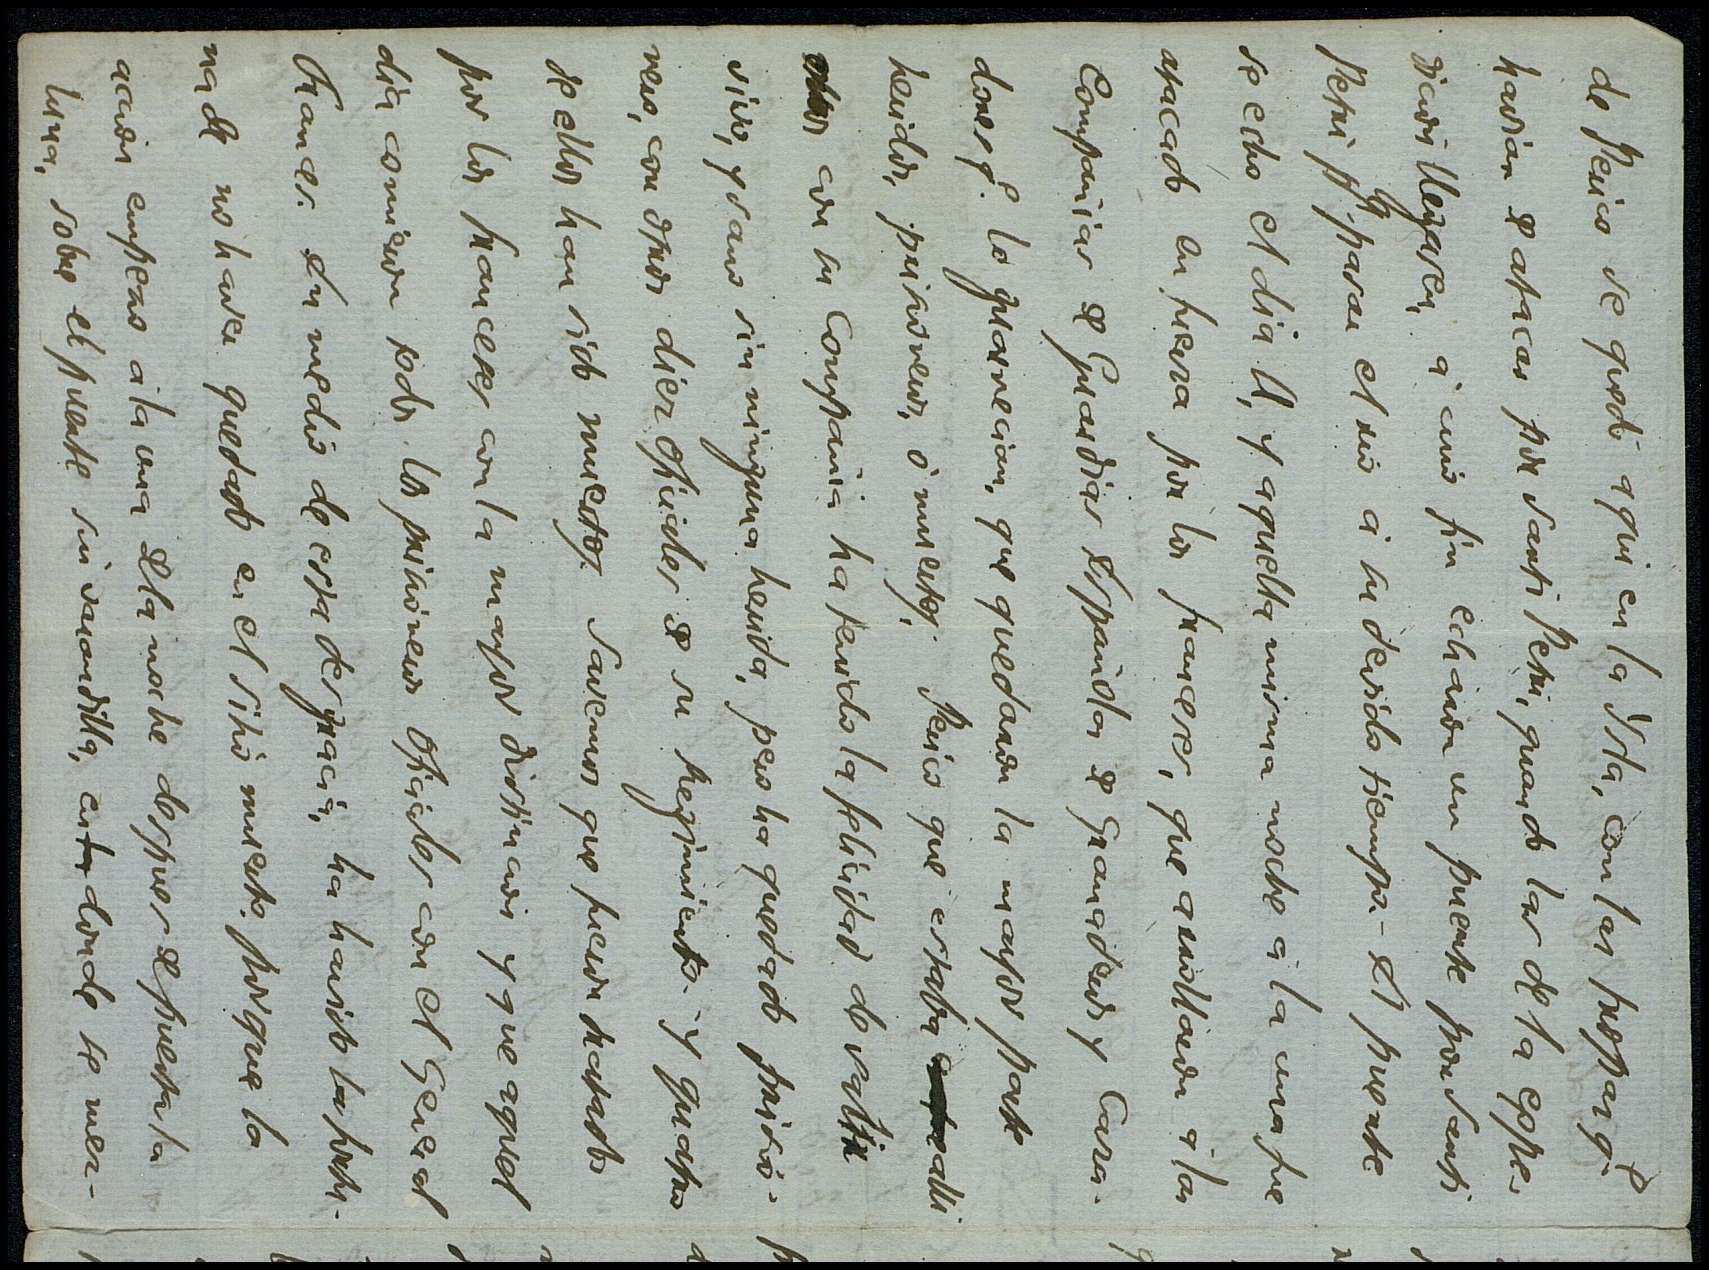 de Perico se quedó aqui en la Ysla, con las tropas q.e
havian de atacar por Santi Petri, quando las de la espe-
dicion llegasen, a cuio fin echaron un puente por Santi
Petri p.a pasar el rio a su devido tiempo. El puente
se echo el dia 11, y aquella misma noche a la una fue
atacado en fuerza por los franceses, que arrollaron a las
Compañias de Guardias Españolas de Granaderos y Caza-
dores q.e lo guarnecian, que quedaron la mayor parte
heridos, prisioneros, ó muertos; Perico que estaba alli
con su Compañia ha tenido la felicidad de salir
vivo, y sano sin ninguna herida, pero ha quedado prisio-
nero, con otros diez oficiales de su Regimiento. y quatro
de ellos han sido muertos. Savemos que fueron tratados
por los franceses con la mayor distincion y que aquel
dia comieron todos los prisioneros oficiales con el General
Frances. En medio de esta desgracia, ha havido la fortu-
na de no haver quedado en el sitio muerto, porque la
accion empezo a la una de la noche despues de puesta la
luna, sobre el puente sin varandilla, en donde se mez-